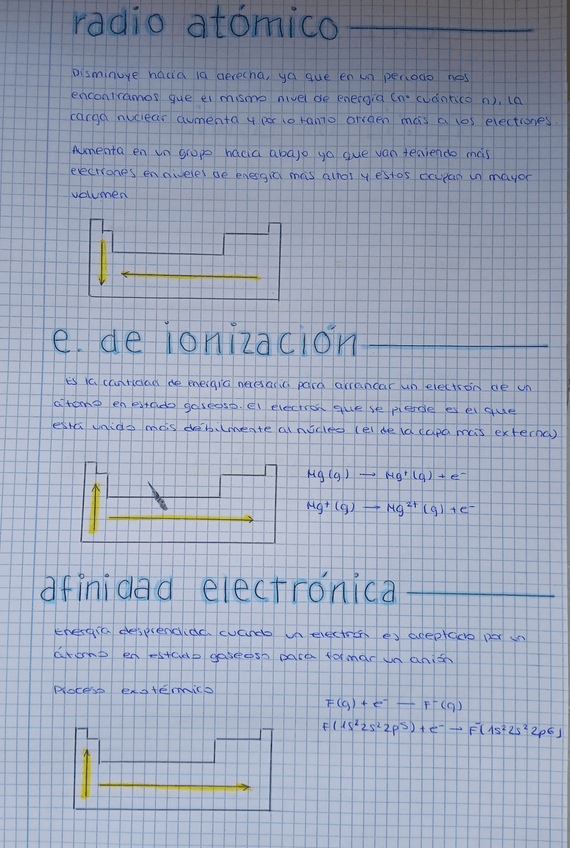 radio atómico
Disminuye hacia la derecha, ya que en un periodo nos
encontramos que el mismo nivel de energía (nº cuántico n), la
carga nuclear aumenta y por lo tanto atraen más a los electrones.
Aumenta en un grupo hacia abajo ya que van teniendo más
electrones en niveles de energía más altos y estos ocupan un mayor
volumen
e. de ionización
Es la cantidad de energía necesaria para arrancar un electrón de un
átomo en estado gaseoso. El electrón que se pierde es el que
está unido más débilmente al núcleo (el de la capa más externa)
Mg(g) → Mg⁺(g) + e⁻
Mg⁺(g) → Mg²⁺(g) + e⁻
afinidad electrónica
Energía desprendida cuando un electrón es aceptado por un
átomo en estado gaseoso para formar un anión
Proceso exotérmico
F(g) + e⁻ — F⁻(g)
F(1s²2s²2p⁵) + e⁻ → F⁻(1s²2s²2p⁶)